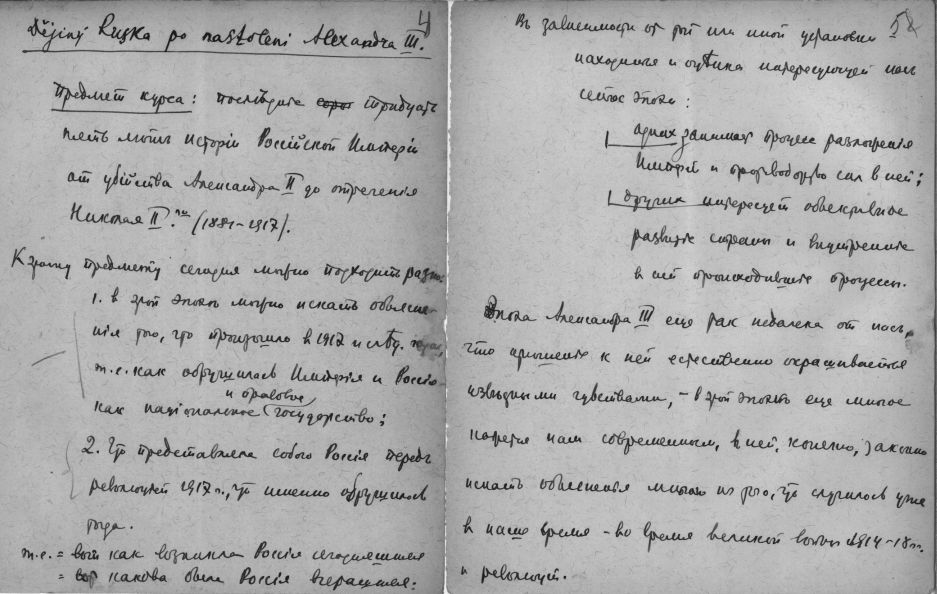 4
Dějiny Ruska po nastoleni Alexandra III.
Предметъ курса: послѣднiе тридцать
пять лѣтъ исторiи Россiйской Имперiи
от убiйства Александра II до отреченiя
Николая II. (1881–1917).
К этому предмету сегодня можно подходить
1. в этой эпохѣ можно искать объясне-
нiя того, что произошло в 1917 и слѣд.
т.е. как обрушилась Имперiя и Россiя
и правовое
как нацiональное государство;
2. Что представляла собою Россiя передъ
революцiей 1917 г., что именно обрушилось
тогда.
т.е. = как возникла Россiя сегодняшняя
= какова была Россiя вчерашняя.
5
Въ зависимости от той или иной установки
находится и оцѣнка интересующей насъ
сейчас эпохи:
одних занимает процесс разложенiя
Имперiи и противоборство сил в ней;
других интересует объективное
развитiе страны и внутреннiе
в ней происходившiе процессы.
Эпоха Александра III еще так недалека от насъ,
что отношенiе к ней естественно окрашивается
чувствами, – в этой эпохѣ еще многое
кажется нам современным, в ней, конечно, законно
искать объясненiя многого из того, что случилось уже
в наше время – во время великой войны 1914–18 гг.
и революцiи.